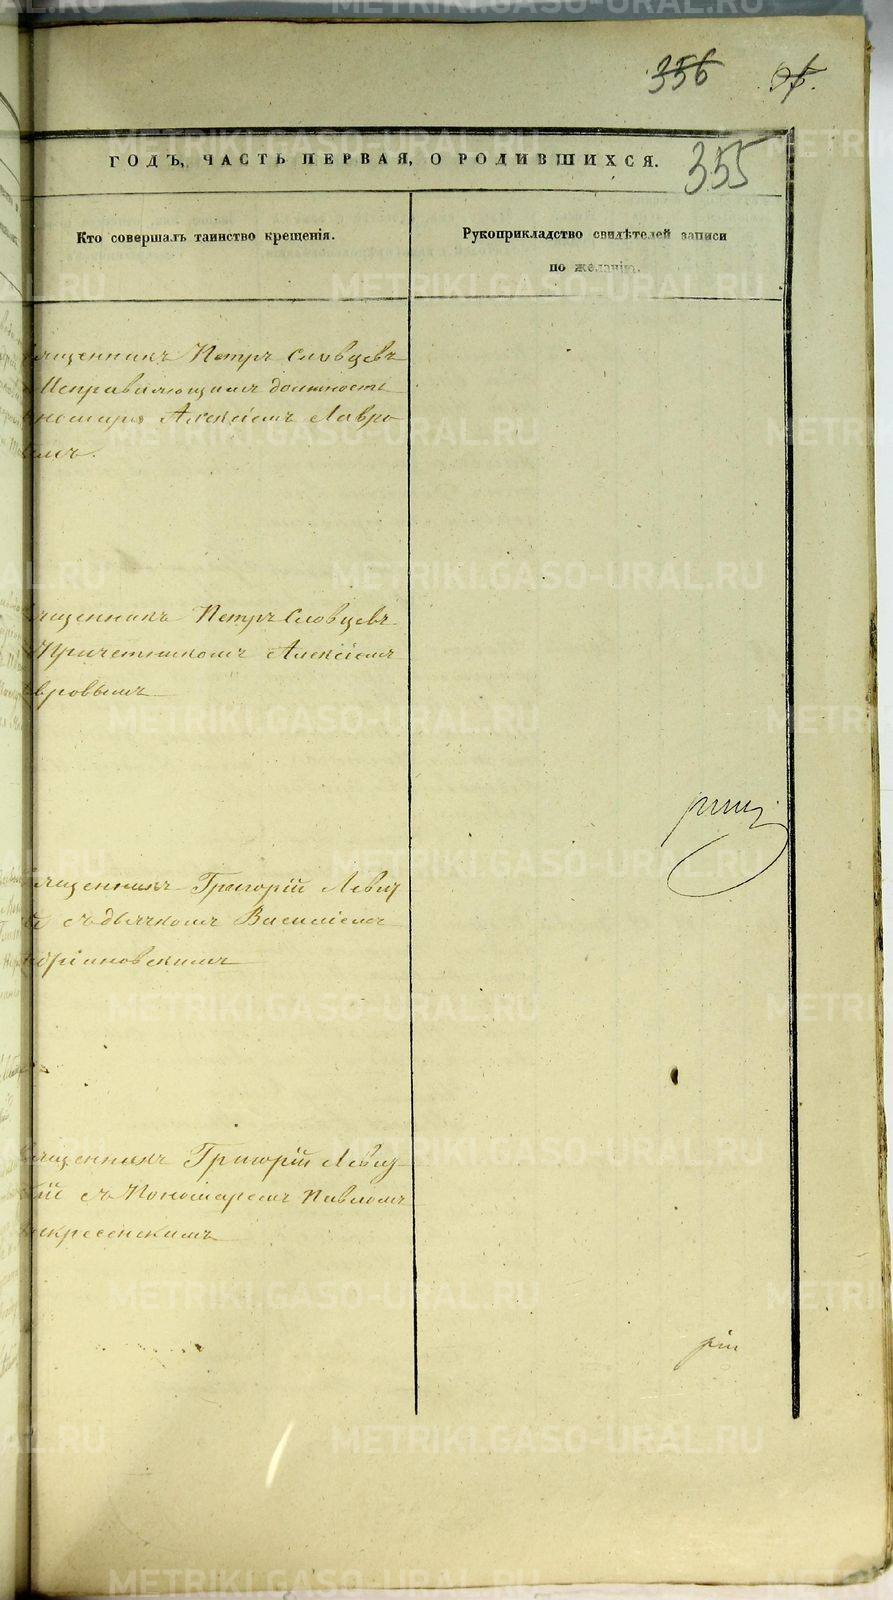 356
355
ГОДЪ, ЧАСТЬ ПЕРВАЯ, О РОДИВШИХСЯ.
Кто совершалъ таинство крещенія.
Рукоприкладство свидѣтелей записи
по желанію.
ященникъ Петръ Словцевъ
Исправляющимъ должность
номаря Алексіемъ Лавро
ымъ.
ященникъ Петръ Словцевъ
Причетникомъ Алексіемъ
вровымъ
ященникъ Григорій Левиц
съ дьячкомъ Василіемъ
дріановскимъ
ященникъ Григорій Левиц
кій съ Пономаремъ Павломъ
скресенскимъ
METRIKI.GASO-URAL.RU